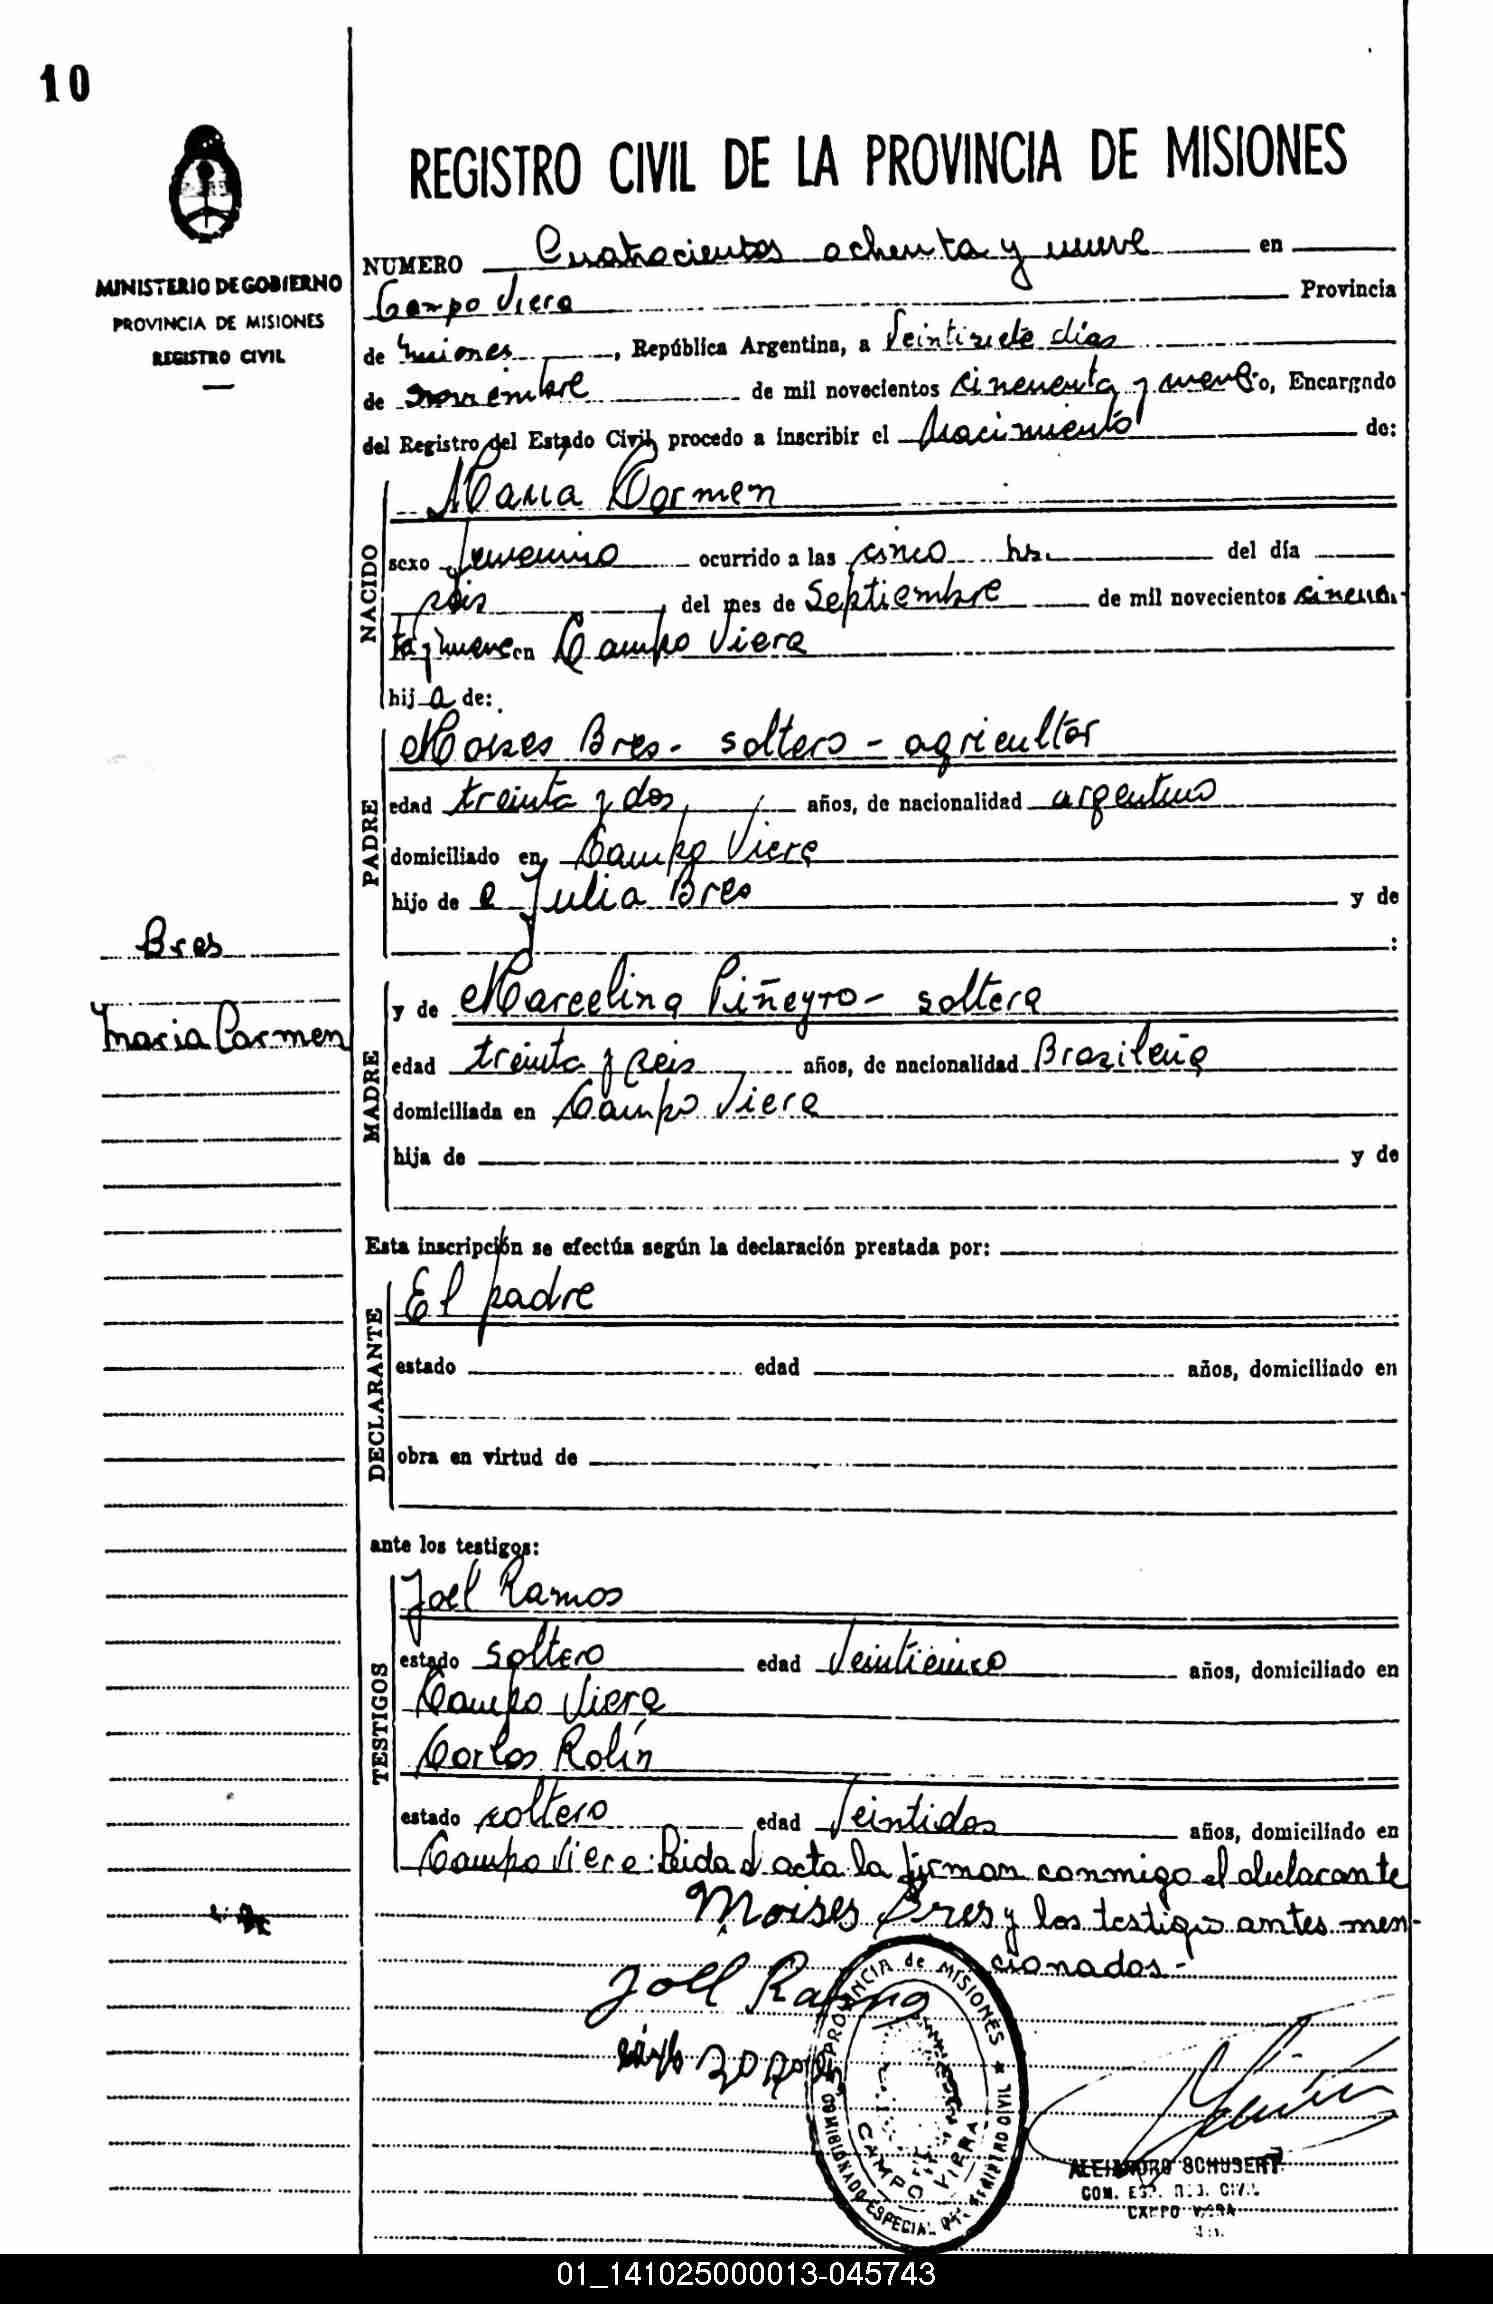 10
REGISTRO CIVIL DE LA PROVINCIA DE MISIONES
MINISTERIO DE GOBIERNO
PROVINCIA DE MISIONES
REGISTRO CIVIL
NUMERO Cuatrocientos ochenta y nueve en
Campo Viera Provincia
de Misiones, República Argentina, a Veintisiete días
de noviembre de mil novecientos cincuenta y nueve o, Encargado
del Registro del Estado Civil, procedo a inscribir el Nacimiento de:
NACIDO
Maria Carmen
sexo femenino ocurrido a las cinco hs. del día
seis, del mes de Septiembre de mil novecientos cincuen-
ta y nueve en Campo Viera
hij a de:
PADRE
Moises Bres - soltero - agricultor
edad treinta y dos años, de nacionalidad argentino
domiciliado en Campo Viera
hijo de e Julia Bres y de
Bres
Maria Carmen
MADRE
y de Marcelina Piñeyro - soltera
edad treinta y seis años, de nacionalidad Brasileña
domiciliada en Campo Viera
hija de y de
Esta inscripción se efectúa según la declaración prestada por:
DECLARANTE
El padre
estado edad años, domiciliado en
obra en virtud de
ante los testigos:
TESTIGOS
Joel Ramos
estado soltero edad Veinticinco años, domiciliado en
Campo Viera
Carlos Rolín
estado soltero edad Veintidos años, domiciliado en
Campo Viera: Leida el acta la firman conmigo el declarante
Moises Bres y los testigos antes men-
cionados-
Joel Ramos
PROVINCIA de MISIONES
COMISIONADO ESPECIAL DEL REGISTRO CIVIL
CAMPO VIERA
ALEJANDRO SCHUBERT
COM. ESP. REG. CIVIL
CAMPO VIERA
01_141025000013-045743